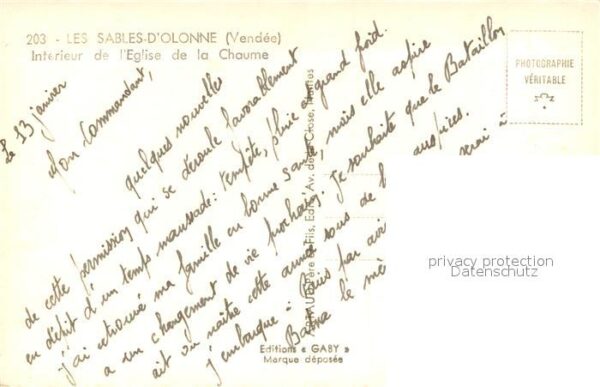 203 - LES SABLES-D'OLONNE (Vendée)
Intérieur de l'Eglise de la Chaume
PHOTOGRAPHIE
VÉRITABLE
Le 13 janvier
Mon Commandant,
quelques nouvelles
de cette permission qui se déroule favorablement
en dépit d'un temps maussade : tempête, pluie et grand froid.
j'ai retrouvé ma famille en bonne santé, mais elle aspire
à un changement de vie prochain. Je souhaite que le Bataillon
ait vu naître cette année sous de auspices.
J'embarque à par avi serai à
le mê
ARTAUD Père et Fils, Edit., Av. de la Close, Nantes
Editions « GABY »
Marque déposée
privacy protection
Datenschutz